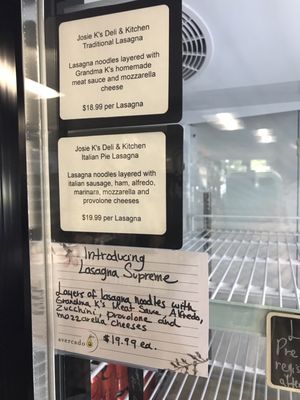 Josie K's Deli & Kitchen
Traditional Lasagna
Lasagna noodles layered with
Grandma K's homemade
meat sauce and mozzarella
cheese
$18.99 per Lasagna
Josie K's Deli & Kitchen
Italian Pie Lasagna
Lasagna noodles layered with
italian sausage, ham, alfredo,
marinara, mozzarella and
provolone cheeses
$19.99 per Lasagna
Introducing
Lasagna Supreme
Layers of lasagna noodles with
Grandma K's Meat Sauce, Alfredo,
Zucchini, provolone and
mozzarella cheeses
$19.99 ea.
avercado